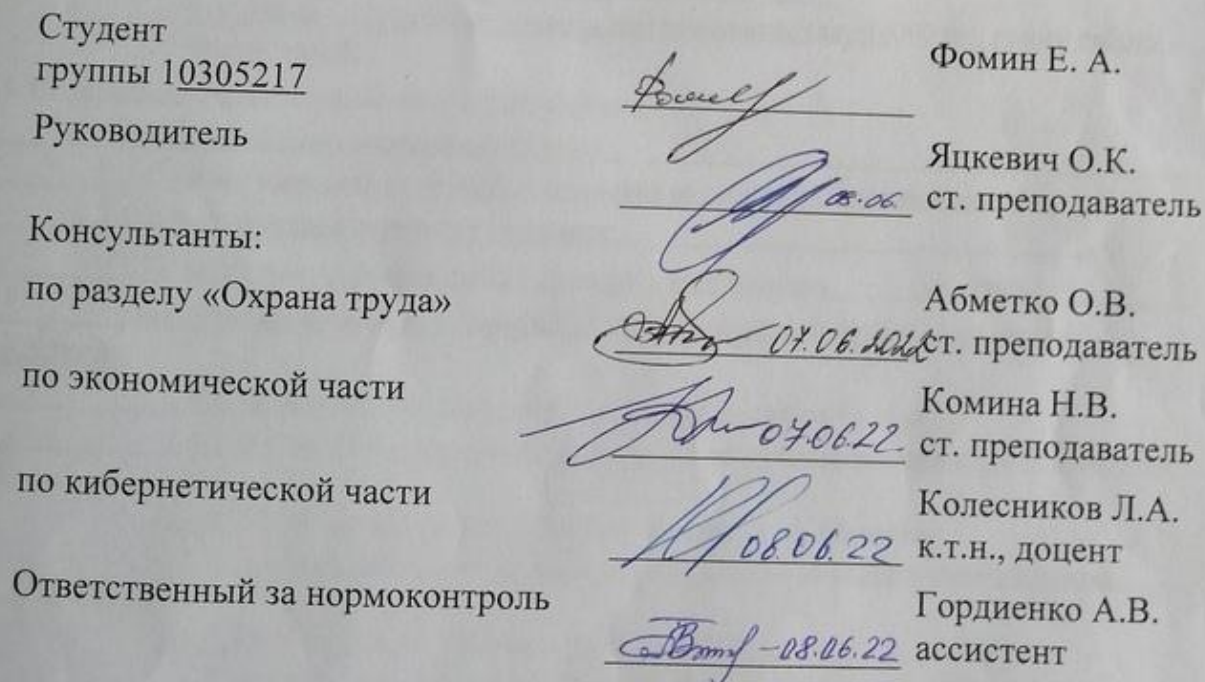 Студент
группы 10305217
Фомин Е. А.
Руководитель
08.06.
Яцкевич О.К.
ст. преподаватель
Консультанты:
по разделу «Охрана труда»
07.06.2022
Абметко О.В.
ст. преподаватель
по экономической части
07.06.22
Комина Н.В.
ст. преподаватель
по кибернетической части
08.06.22
Колесников Л.А.
к.т.н., доцент
Ответственный за нормоконтроль
08.06.22
Гордиенко А.В.
ассистент